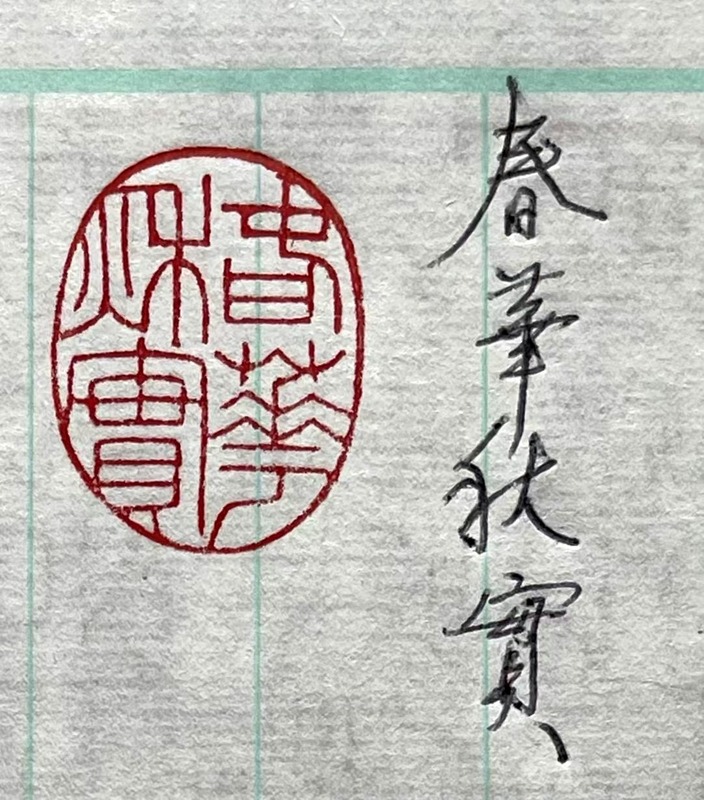 春華秋實
春華
秋實